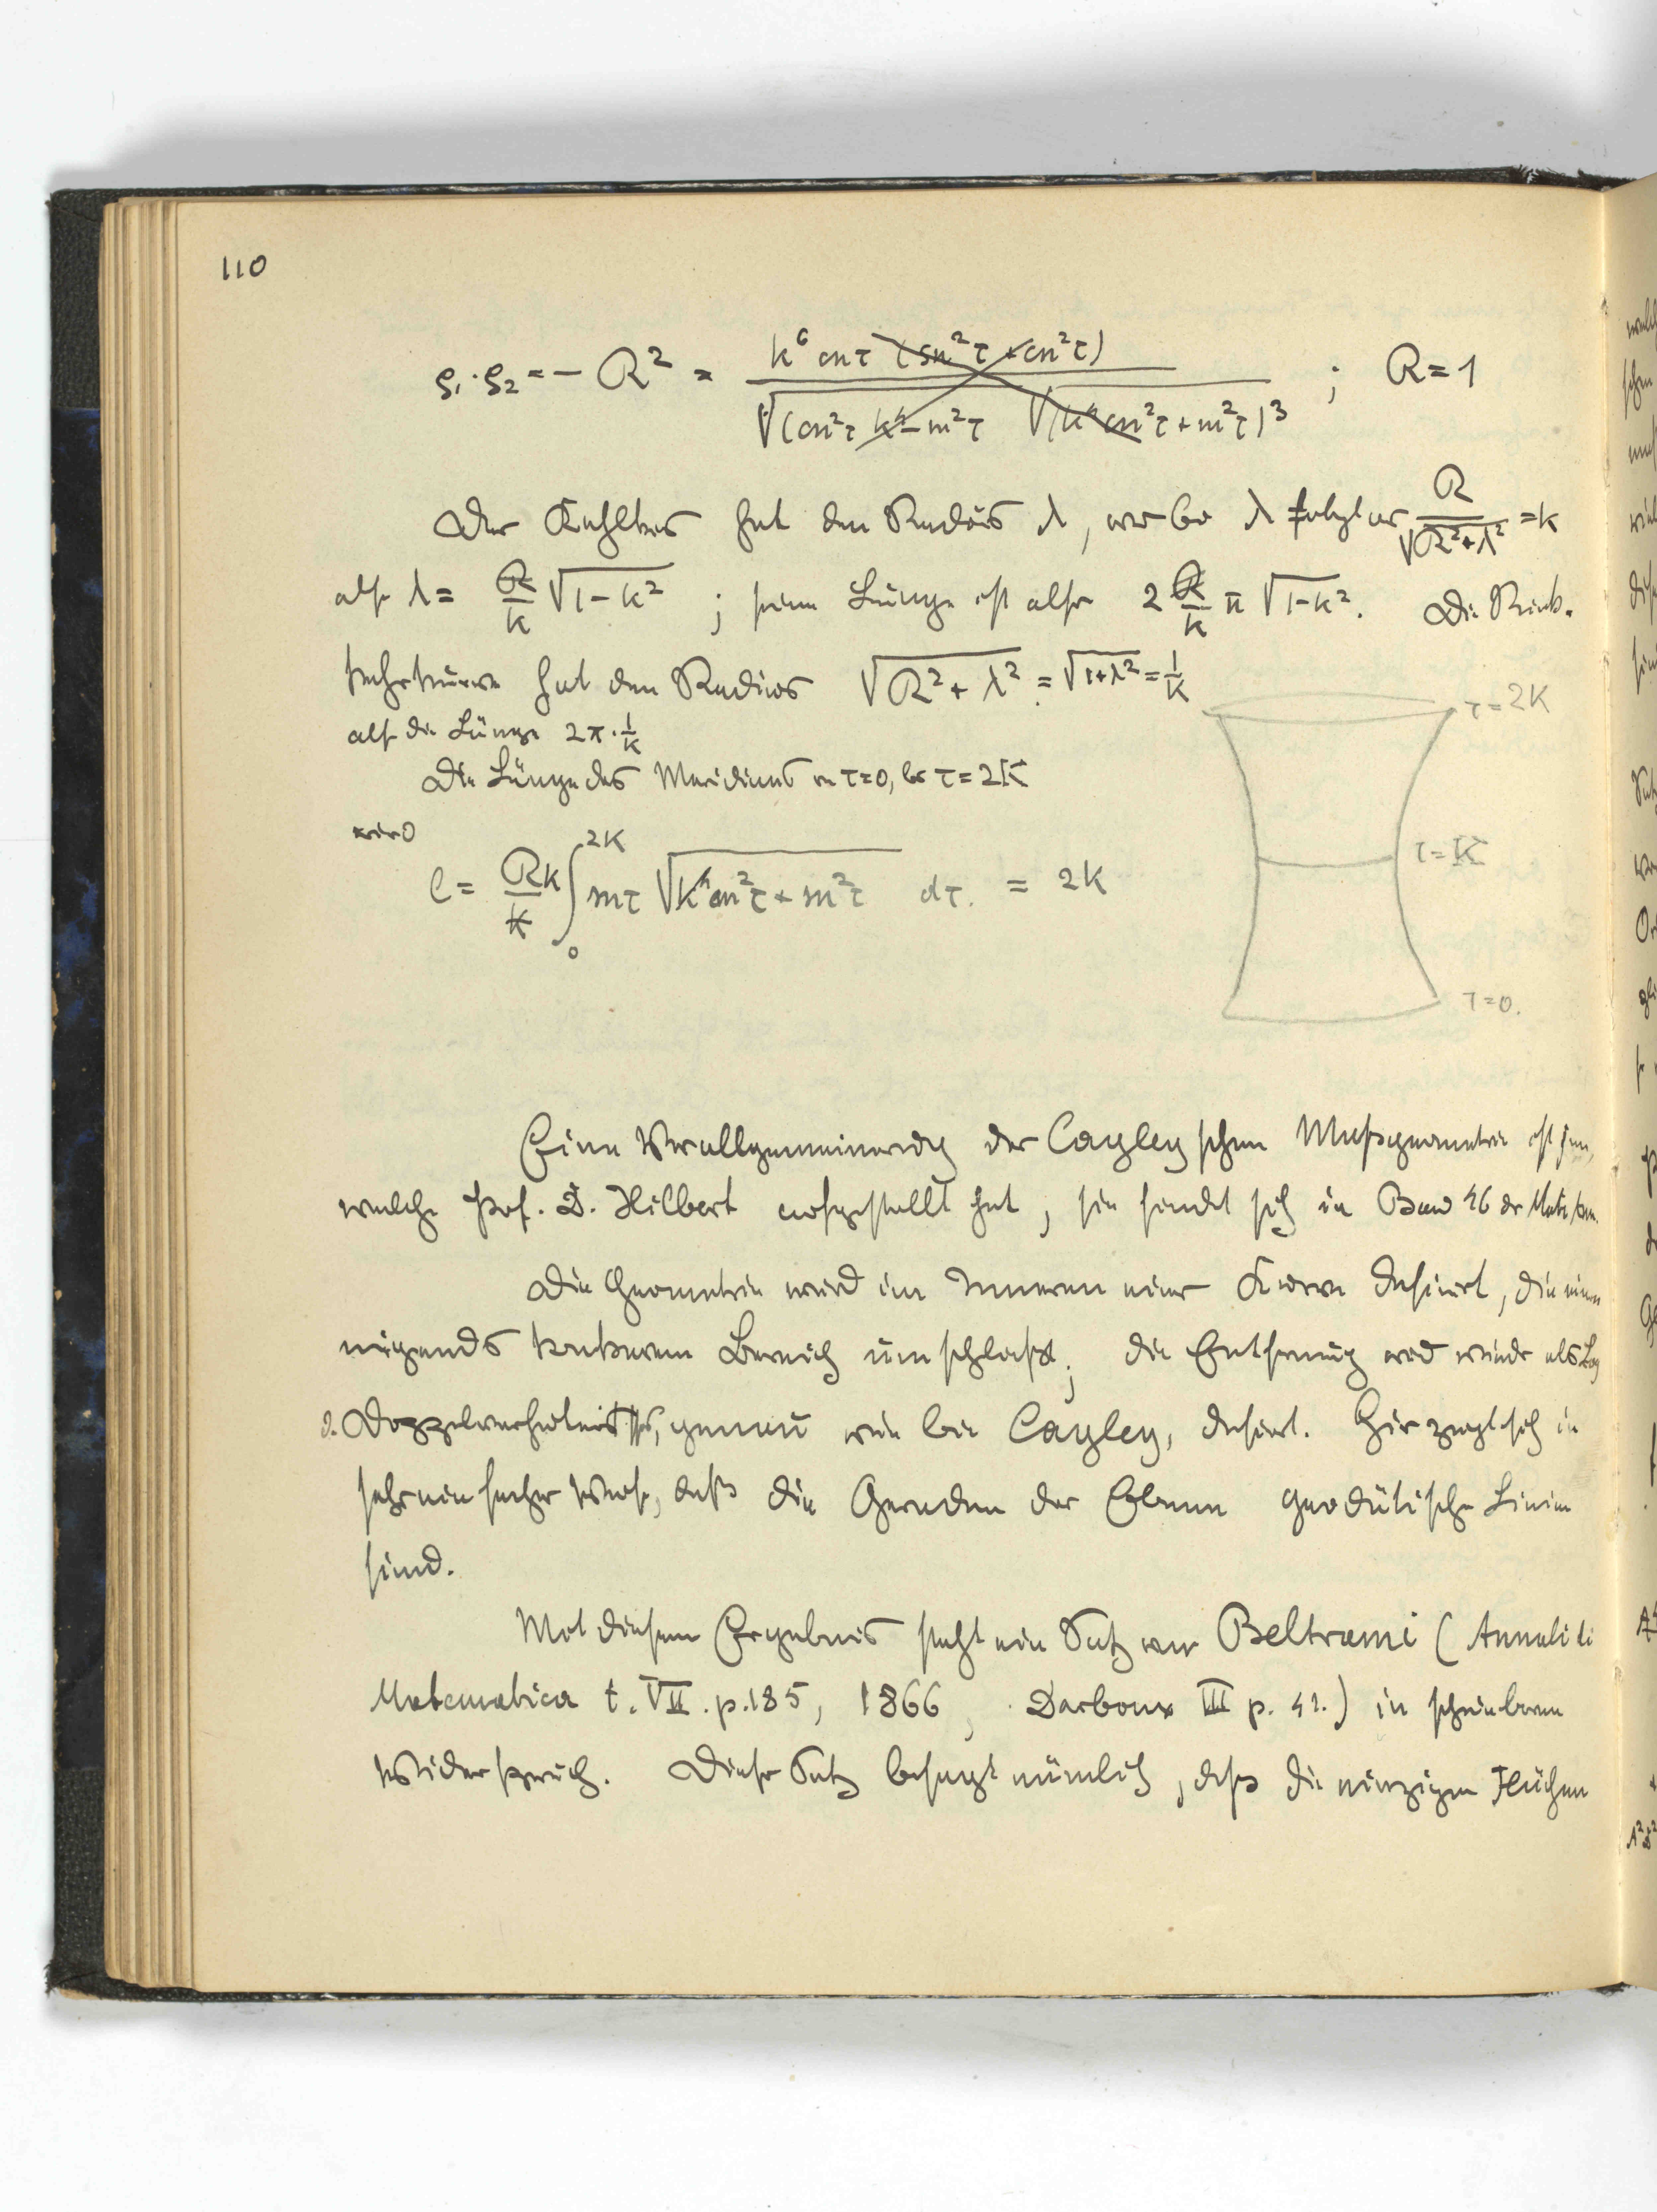 110
ρ₁·ρ₂ = − R² = k⁶ cn τ (sn²τ + cn²τ) / √(cn²τ k⁴ − sn²τ √(k⁴ cn²τ + sn²τ)³ ; R = 1
Der Kehlkreis hat den Radius λ, wobei λ folgt aus R/√(R²+λ²) = k
also λ = R/k √(1−k²) ; seine Länge ist also 2 R/k π √(1−k². Die Rück-
kehrkurve hat den Radius √(R²+λ²) = √(1+λ²) = 1/k
also die Länge 2π·1/k
Die Länge des Meridians v τ=0, bis τ=2K
wird
l = Rk/k ∫₀^2K sn τ √(k⁴ cn²τ + sn²τ) dτ. = 2K
τ=2K
τ=K
τ=0.
Eine Verallgemeinerung der Cayleyschen Massgeometrie ist jene,
welche Prof. D. Hilbert aufgestellt hat, sie findet sich in Band 46 der Math. Ann.
Die Geometrie wird im Inneren einer Kurve definirt, die einen
nirgends konkaven Bereich umschliesst; die Entfernung wird wieder als Log
d. Doppelverhältnisses, genau wie bei Cayley, definirt. Hier zeigt sich in
sehr einfacher Weise, dass die Geraden der Ebene geodätische Linien
sind.
Mit diesem Ergebnis steht ein Satz von Beltrami (Annali di
Matematica t. VII. p. 185, 1866, Darboux III p. 41.) in scheinbarem
Widerspruch. Dieser Satz besagt nämlich, dass die einzigen Flächen